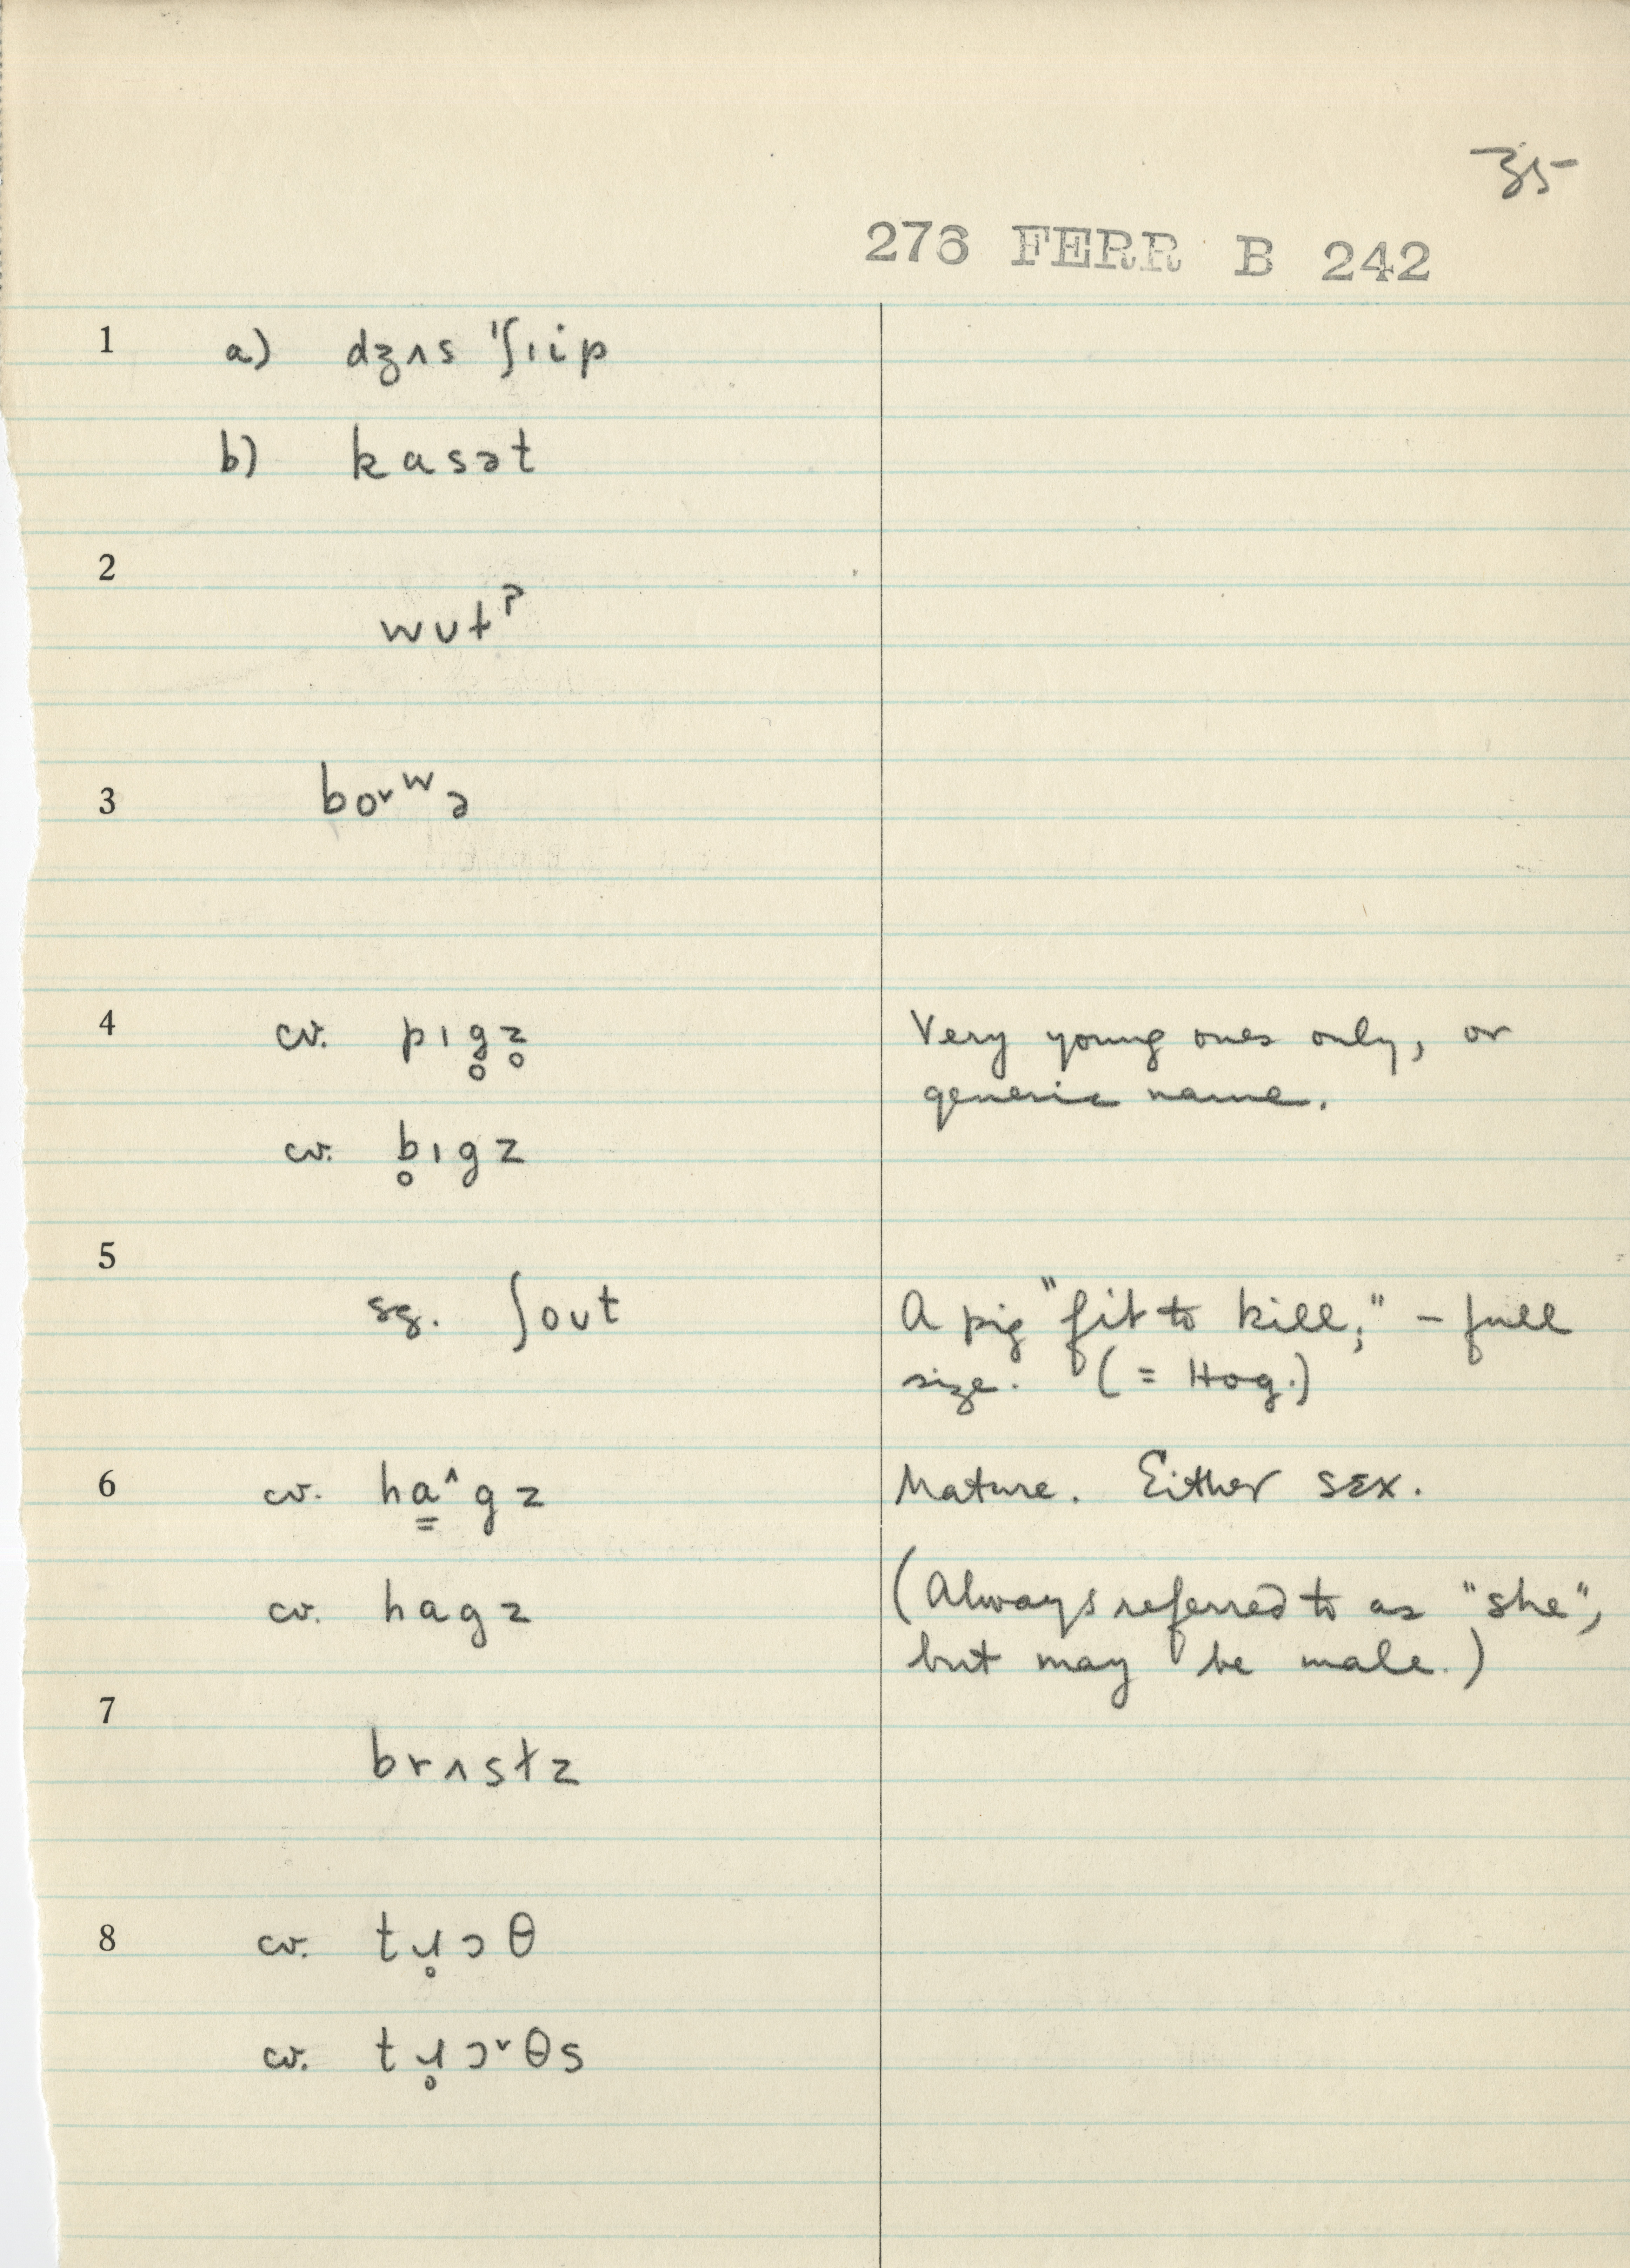 35
276 FERR B 242
1 a) dʒʌs 'ʃɪip
b) kasət
2
wʊt?
3 bo˅ʷə
4 cv. pɪg̥z̥ Very young ones only, or
generic name.
cv. b̥ɪgz
5
sg. ʃoʊt A pig "fit to kill," – full
size. (= Hog.)
6 cv. ha̳^gz Mature. Either sex.
cv. hagz (Always referred to as "she",
but may be male.)
7
brʌstz
8 cv. tɹ̥ɔθ
cv. tɹ̥ɔ˅θs